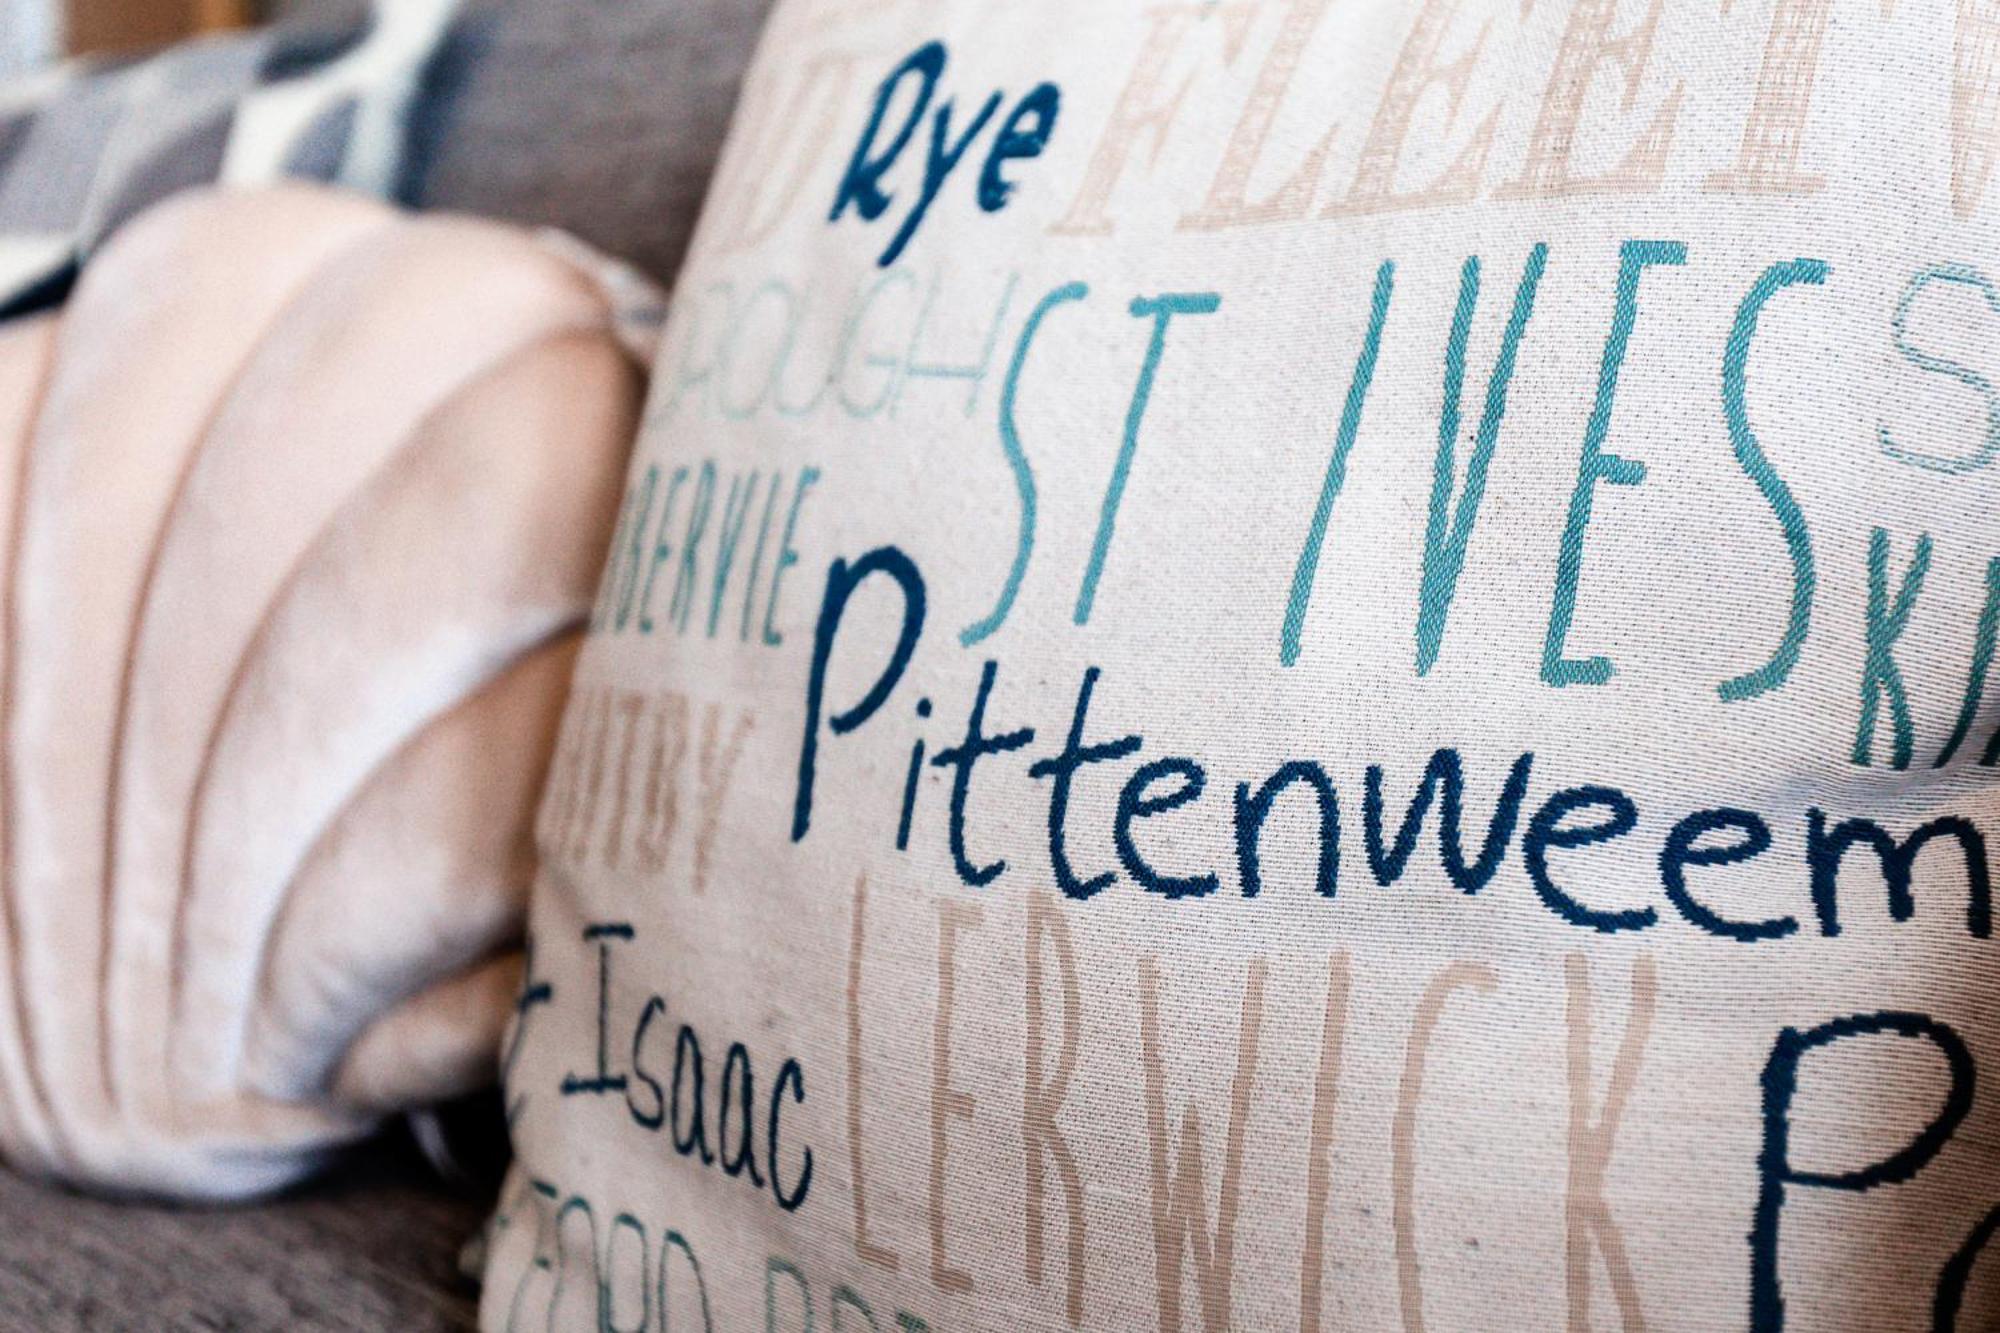 Rye FLEETW
ROUGH ST IVES S
BERVIE
Pittenweem
ITBY
Isaac LERWICK